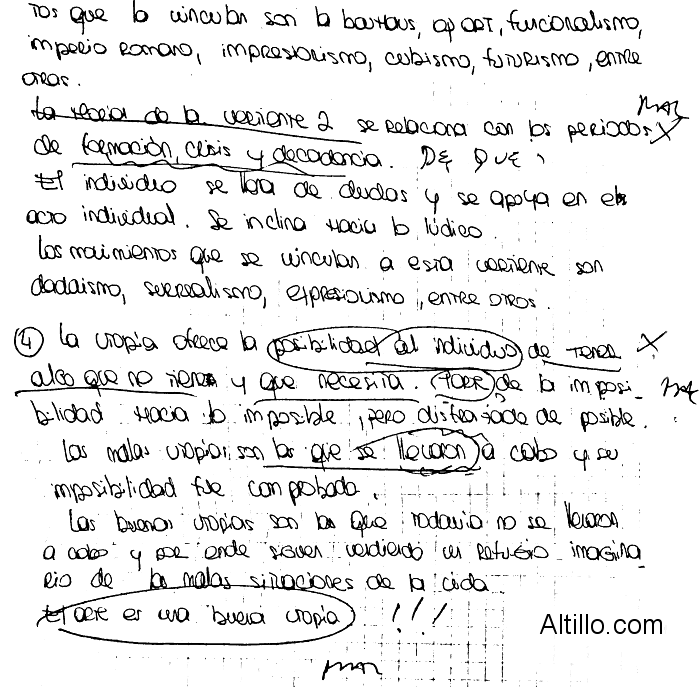 tos que lo vinculan son la bauhaus, op art, funcionalismo,
imperio romano, impresionismo, cubismo, futurismo, entre
otras.
La teoria de la veriente 2 se relaciona con los periodos X MAL
de formación, crisis y decadencia. DE QUE
El individuo se llena de dudas y se apoya en el
acto individual. Se inclina hacia lo lúdico.
Los movimientos que se vinculan a esta veriente son
dadaismo, surrealismo, expresionismo, entre otros.
4) La utopía ofrece la posibilidad al individuo de tener X
algo que no tiene y que necesita. de la imposi- MAL
bilidad hacia lo imposible, pero disfrazada de posible.
Las malas utopias son las que se llevaron a cabo y su
imposibilidad fue comprobada.
Las buenas utopias son las que todavia no se llevaron
a cabo y por ende siguen un refugio imagina
rio de las malas situaciones de la vida
El arte es una buena utopía !!!
MAL
Altillo.com